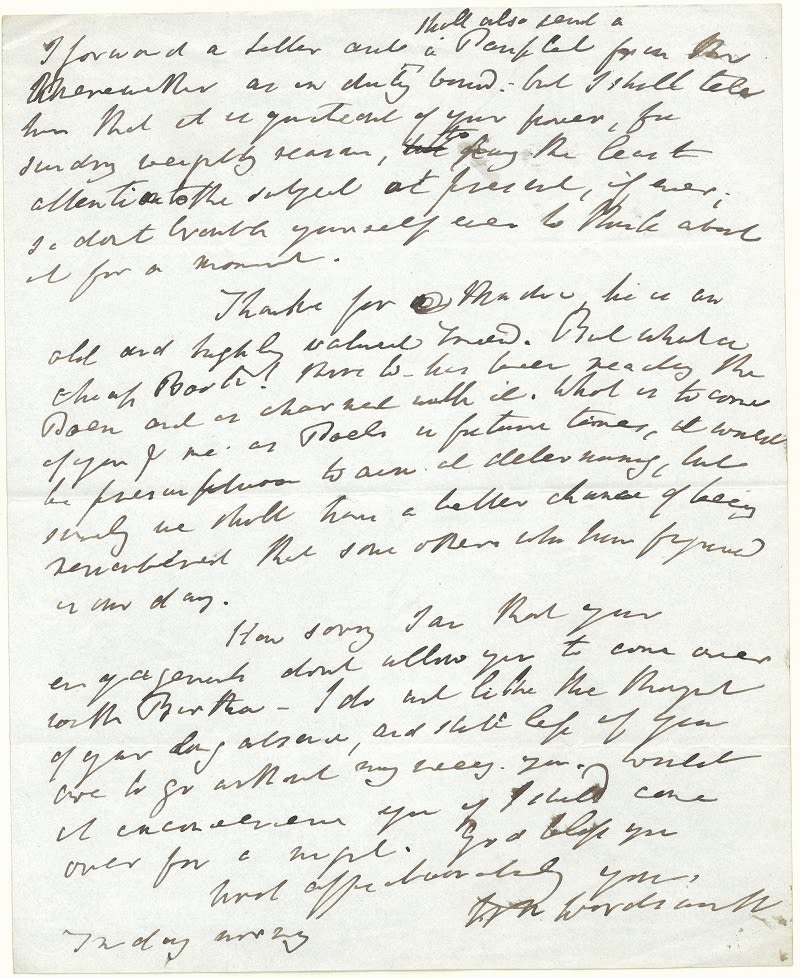 shall also send a
I forward a letter and a Pamphlet from
wherewith as in duty bound - but I shall tell
him that it is quite out of your power, for
sundry weighty reasons, to pay the least
attention to the subject at present, if ever;
so dont trouble yourself even to think about
it for a moment.
Thanks for he is an
old and highly valued friend. But what a
cheap Book! has been reading the
Poem and is charmed with it. What is to come
of you & me as Poets in future times, it would
be presumption to aim at determining, but
surely we shall have a better chance of being
remembered than some others who have figured
in our day.
How sorry I am that your
engagements dont allow you to come over
with Bertha - I do not like the thought
of your long absence, and still less if you
are to go without my seeing you. Would
it inconvenience you if I should come
over for a night. God bless you
most affectionately yours
Wm Wordsworth
morning